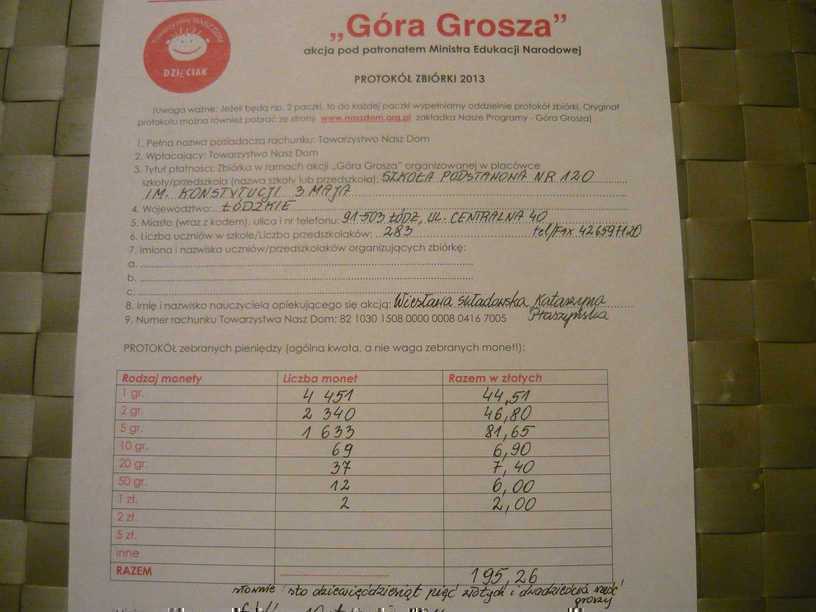 Towarzystwo NASZ DOM
DZIĘCIAK
„Góra Grosza”
akcja pod patronatem Ministra Edukacji Narodowej
PROTOKÓŁ ZBIÓRKI 2013
(Uwaga ważne: Jeżeli będą np. 2 paczki, to do każdej paczki wypełniamy oddzielnie protokół zbiórki. Oryginał
protokołu można również pobrać ze strony www.naszdom.org.pl zakładka Nasze Programy - Góra Grosza)
1. Pełna nazwa posiadacza rachunku: Towarzystwo Nasz Dom
2. Wpłacający: Towarzystwo Nasz Dom
3. Tytuł płatności: Zbiórka w ramach akcji „Góra Grosza” organizowanej w placówce
szkoły/przedszkola (nazwa szkoły lub przedszkola): SZKOŁA PODSTAWOWA NR 120
IM. KONSTYTUCJI 3 MAJA
4. Województwo: ŁÓDZKIE
5. Miasto (wraz z kodem), ulica i nr telefonu: 91-503 ŁÓDŹ, UL. CENTRALNA 40
6. Liczba uczniów w szkole/Liczba przedszkolaków: 283 tel/fax 426597120
7. Imiona i nazwiska uczniów/przedszkolaków organizujących zbiórkę:
a.
b.
c.
8. Imię i nazwisko nauczyciela opiekującego się akcją: Wiesława Składowska Katarzyna
9. Numer rachunku Towarzystwa Nasz Dom: 82 1030 1508 0000 0008 0416 7005 Ptaszyńska
PROTOKÓŁ zebranych pieniędzy (ogólna kwota, a nie waga zebranych monet!):
Rodzaj monety Liczba monet Razem w złotych
1 gr. 4 451 44,51
2 gr. 2 340 46,80
5 gr. 1 633 81,65
10 gr. 69 6,90
20 gr. 37 7,40
50 gr. 12 6,00
1 zł. 2 2,00
2 zł.
5 zł.
inne
RAZEM 195,26
słownie: sto dziewięćdziesiąt pięć złotych i dwadzieścia sześć
groszy